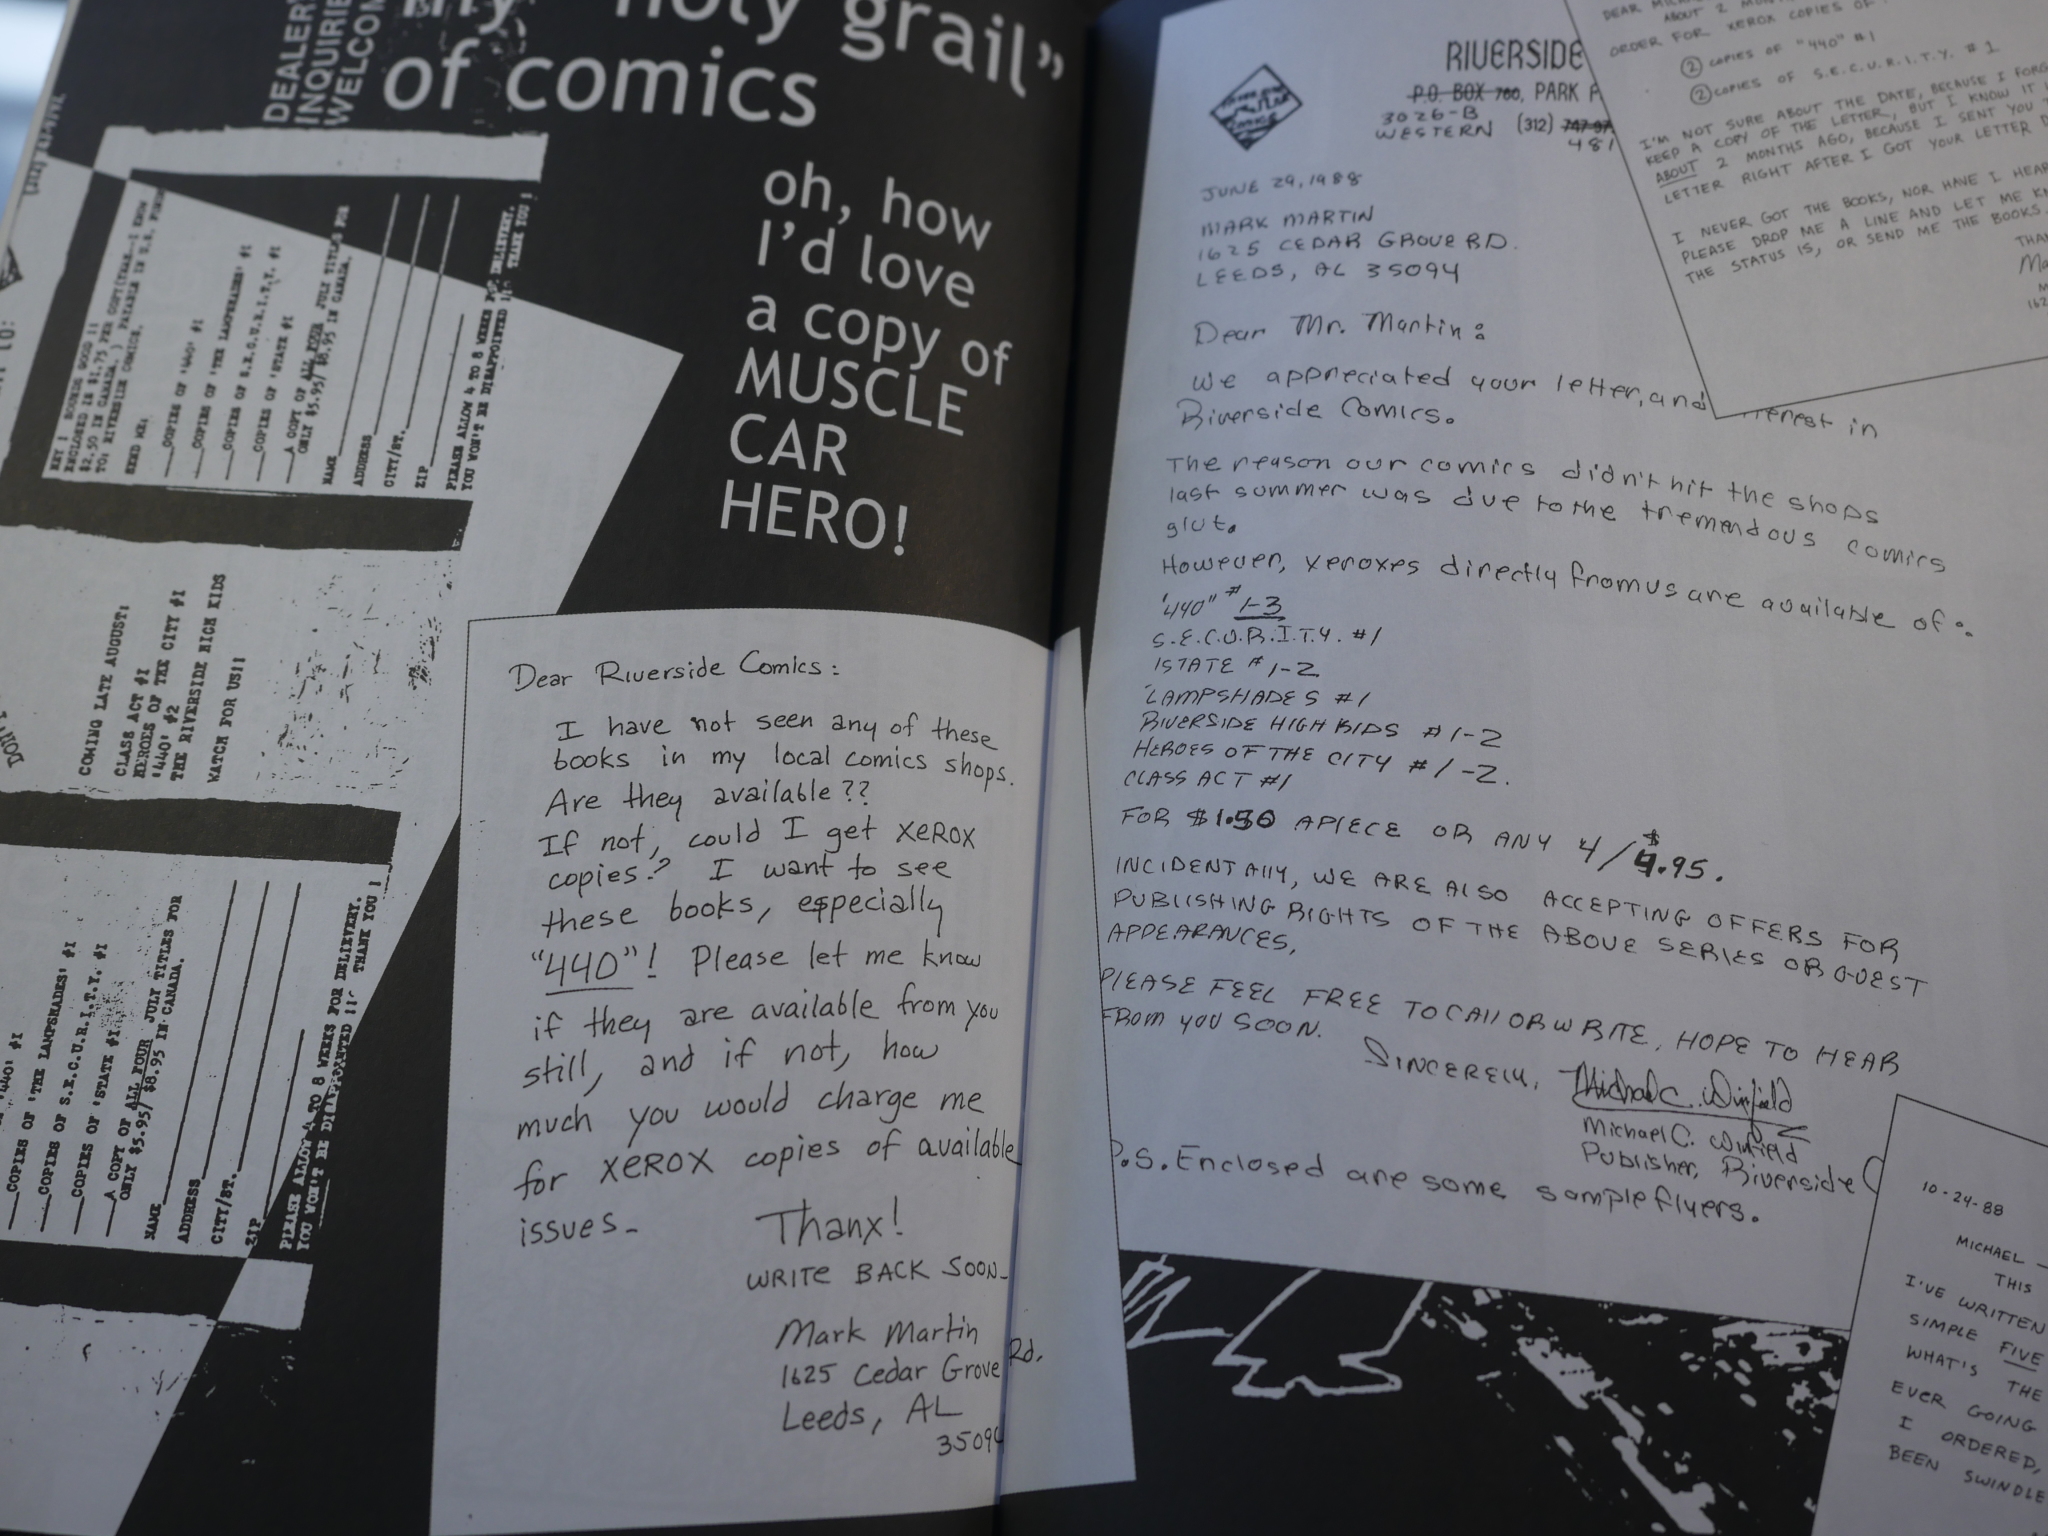 my "holy grail"
of comics
DEALER
INQUIRIE
WELCOM
oh, how
I'd love
a copy of
MUSCLE
CAR
HERO!
HEY ! SOUNDS GOOD !!
ENCLOSED IS $1.75 PER COPY
$2.50 IN CANADA. ) PAYABLE IN U.S.
TO: RIVERSIDE COMICS.
SEND ME:
COPIES OF '440' #1
COPIES OF 'THE LAMPSHADES' #1
COPIES OF S.E.C.U.R.I.T.Y. #1
COPIES OF 'STATE #1
A COPY OF ALL FOUR JULY TITLES FOR
ONLY $5.95/ $8.95 IN CANADA.
NAME
ADDRESS
CITY/ST.
ZIP
PLEASE ALLOW 4 TO 8 WEEKS FOR DELIEVERY.
YOU WON'T BE DISAPPOINTED !!! THANK YOU !
COMING LATE AUGUST:
CLASS ACT #1
HEROES OF THE CITY #1
'440' #2
THE RIVERSIDE HIGH KIDS
WATCH FOR US!!
DON'T
'440' #1
COPIES OF 'THE LAMPSHADES' #1
COPIES OF S.E.C.U.R.I.T.Y. #1
COPIES OF 'STATE #1
A COPY OF ALL FOUR JULY TITLES FOR
ONLY $5.95/ $8.95 IN CANADA.
NAME
ADDRESS
CITY/ST.
ZIP
PLEASE ALLOW 4 TO 8 WEEKS FOR DELIEVERY.
YOU WON'T BE DISAPPOINTED !!! THANK YOU !
Dear Riverside Comics:
I have not seen any of these
books in my local comics shops.
Are they available??
If not, could I get XEROX
copies? I want to see
these books, especially
"440"! Please let me know
if they are available from you
still, and if not, how
much you would charge me
for XEROX copies of available
issues-
Thanx!
WRITE BACK SOON-
Mark Martin
1625 Cedar Grove Rd.
Leeds, AL
3509
RIVERSIDE
P.O. BOX 760, PARK F
3026-B
WESTERN (312) 747-97
481
JUNE 29, 1988
MARK MARTIN
1625 CEDAR GROVE RD.
LEEDS, AL 35094
Dear Mr. Martin:
We appreciated your letter, and terest in
Riverside Comics.
The reason our comics didn't hit the shops
last summer was due to the tremendous comics
glut.
However, xeroxes directly from us are available of:
'440" # 1-3
S.E.C.U.R.I.T.Y. #1
ISTATE # 1-2
LAMPSHADES #1
RIVERSIDE HIGH KIDS #1-2
HEROES OF THE CITY #1-2.
CLASS ACT #1
FOR $1.50 APIECE OR ANY 4/$4.95.
INCIDENTALLY, WE ARE ALSO ACCEPTING OFFERS FOR
PUBLISHING RIGHTS OF THE ABOVE SERIES OR GUEST
APPEARANCES,
PLEASE FEEL FREE TO CALL OR WRITE, HOPE TO HEAR
FROM YOU SOON.
SINCERELY, Michael C. Winfield
Michael C. Winfield
Publisher, Riverside C
P.S. Enclosed are some sample flyers.
DEAR MICHA
ABOUT 2 MON
ORDER FOR XEROX COPIES OF
② COPIES OF "440" #1
② COPIES OF S.E.C.U.R.I.T.Y. #1
I'M NOT SURE ABOUT THE DATE, BECAUSE I FORG
KEEP A COPY OF THE LETTER, BUT I KNOW IT
ABOUT 2 MONTHS AGO, BECAUSE I SENT YOU T
LETTER RIGHT AFTER I GOT YOUR LETTER D
I NEVER GOT THE BOOKS, NOR HAVE I HEAR
PLEASE DROP ME A LINE AND LET ME KN
THE STATUS IS, OR SEND ME THE BOOKS.
THAN
Ma
M
162
10-24-88
MICHAEL -
THIS
I'VE WRITTEN
SIMPLE FIVE
WHAT'S THE
EVER GOING
I ORDERED,
BEEN SWINDLE